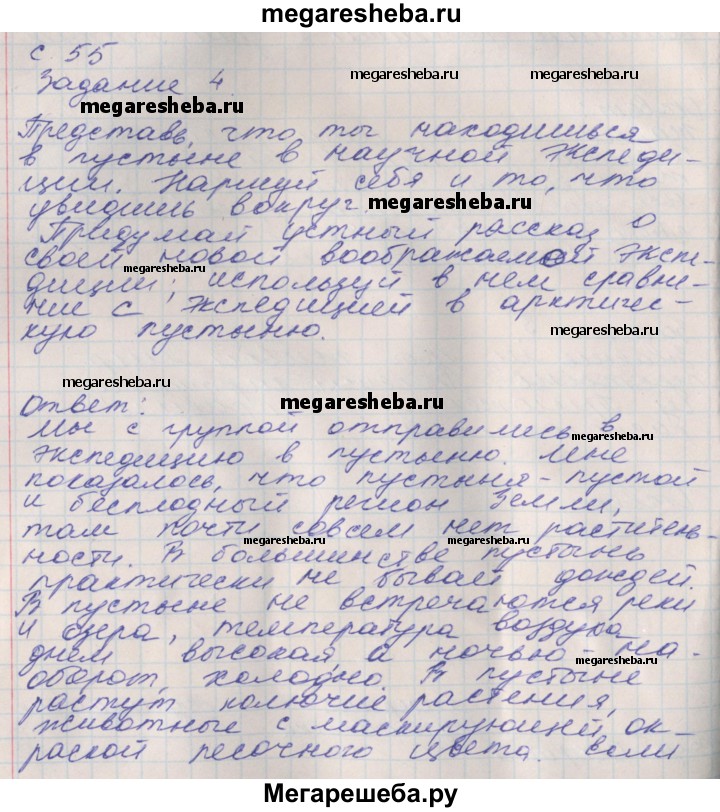 megaresheba.ru
с 55
Задание 4
megaresheba.ru megaresheba.ru
megaresheba.ru
Представь, что ты находишься
в пустыне в научной экспеди-
ции. Нарисуй себя и то, что
увидишь вокруг.
megaresheba.ru
Придумай устный рассказ о
своей новой воображаемой экспе-
megaresheba.ru
диции; используй в нем сравне-
ние с экспедицией в арктичес-
кую пустыню.
megaresheba.ru
megaresheba.ru
megaresheba.ru
Ответ:
Мы с группой отправились в
megaresheba.ru
экспедицию в пустыню. Мне
показалось, что пустыня - пустой
и бесплодный регион Земли,
там почти совсем нет раститель-
megaresheba.ru megaresheba.ru
ности. В большинстве пустынь
практически не бывает дождей.
В пустыне не встречаются реки
и озера, температура воздуха
днем высокая, а ночью - на-
megaresheba.ru
оборот, холодно. В пустыне
растут колючие растения,
животные с маскирующей ок-
megaresheba.ru
раской песочного цвета. Если
Мегарешеба.ру